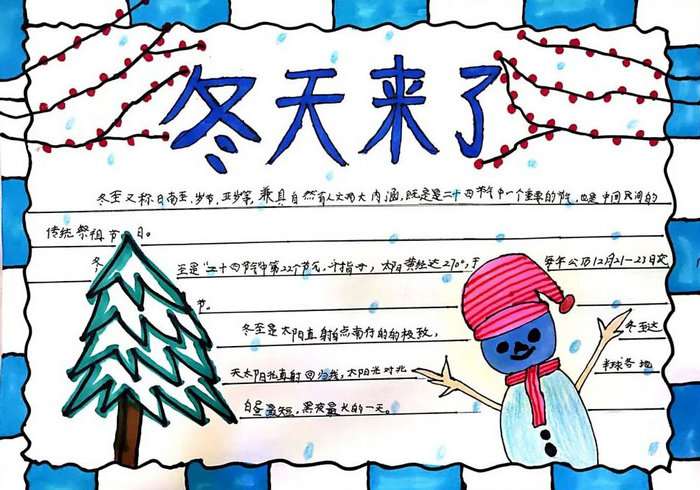 冬天来了
冬至又称日南至、冬节、亚岁等，兼具自然与人文两大内涵，既是二十四节气中一个重要的节气，也是中国民间的
传统祭祖节日。
冬 至是二十四节气中第22个节气，斗指子，太阳黄经达270°，于 每年公历12月21-23日交
节。
冬至是太阳直射点南行的极致， 冬至这
天太阳光直射 回归线，太阳光对北 半球各地
白昼最短，黑夜最长的一天。